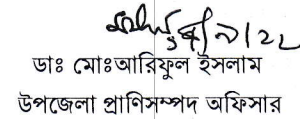 ডাঃ মোঃআরিফুল ইসলাম
উপজেলা প্রাণিসম্পদ অফিসার